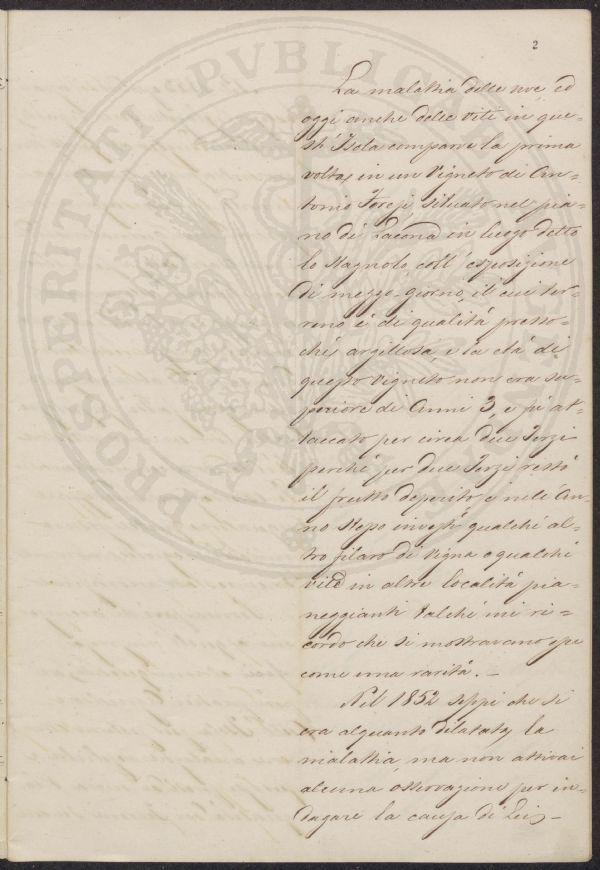 2
La malattia delle uve ed
oggi anche delle viti in que-
st' Isola comparve la prima
volta, in un Vigneto di An-
tonio Foresi, situato nel pia-
no di Lacona in luogo detto
lo Stagnolo, coll' esposizione
di mezzo-giorno, il cui ter-
reno é di qualitá presso-
ché argillosa, e la etá di
questo Vigneto non era su-
periore di Anni 3, e fú at-
taccato per circa due Terzi
perché per due Terzi restó
il frutto deperito, e nell' An-
no stesso investí qualche al-
tro filare di vigna o qualche
vite in altre localitá pia-
neggianti talché mi ri-
cordo che si mostravano
come una raritá. -
Nel 1852 seppi che si
era alquanto dilatata, la
malattia, ma non attivai
alcuna osservazione per in-
dagare la causa di Lei -
PROSPERITATI PVBLICAE